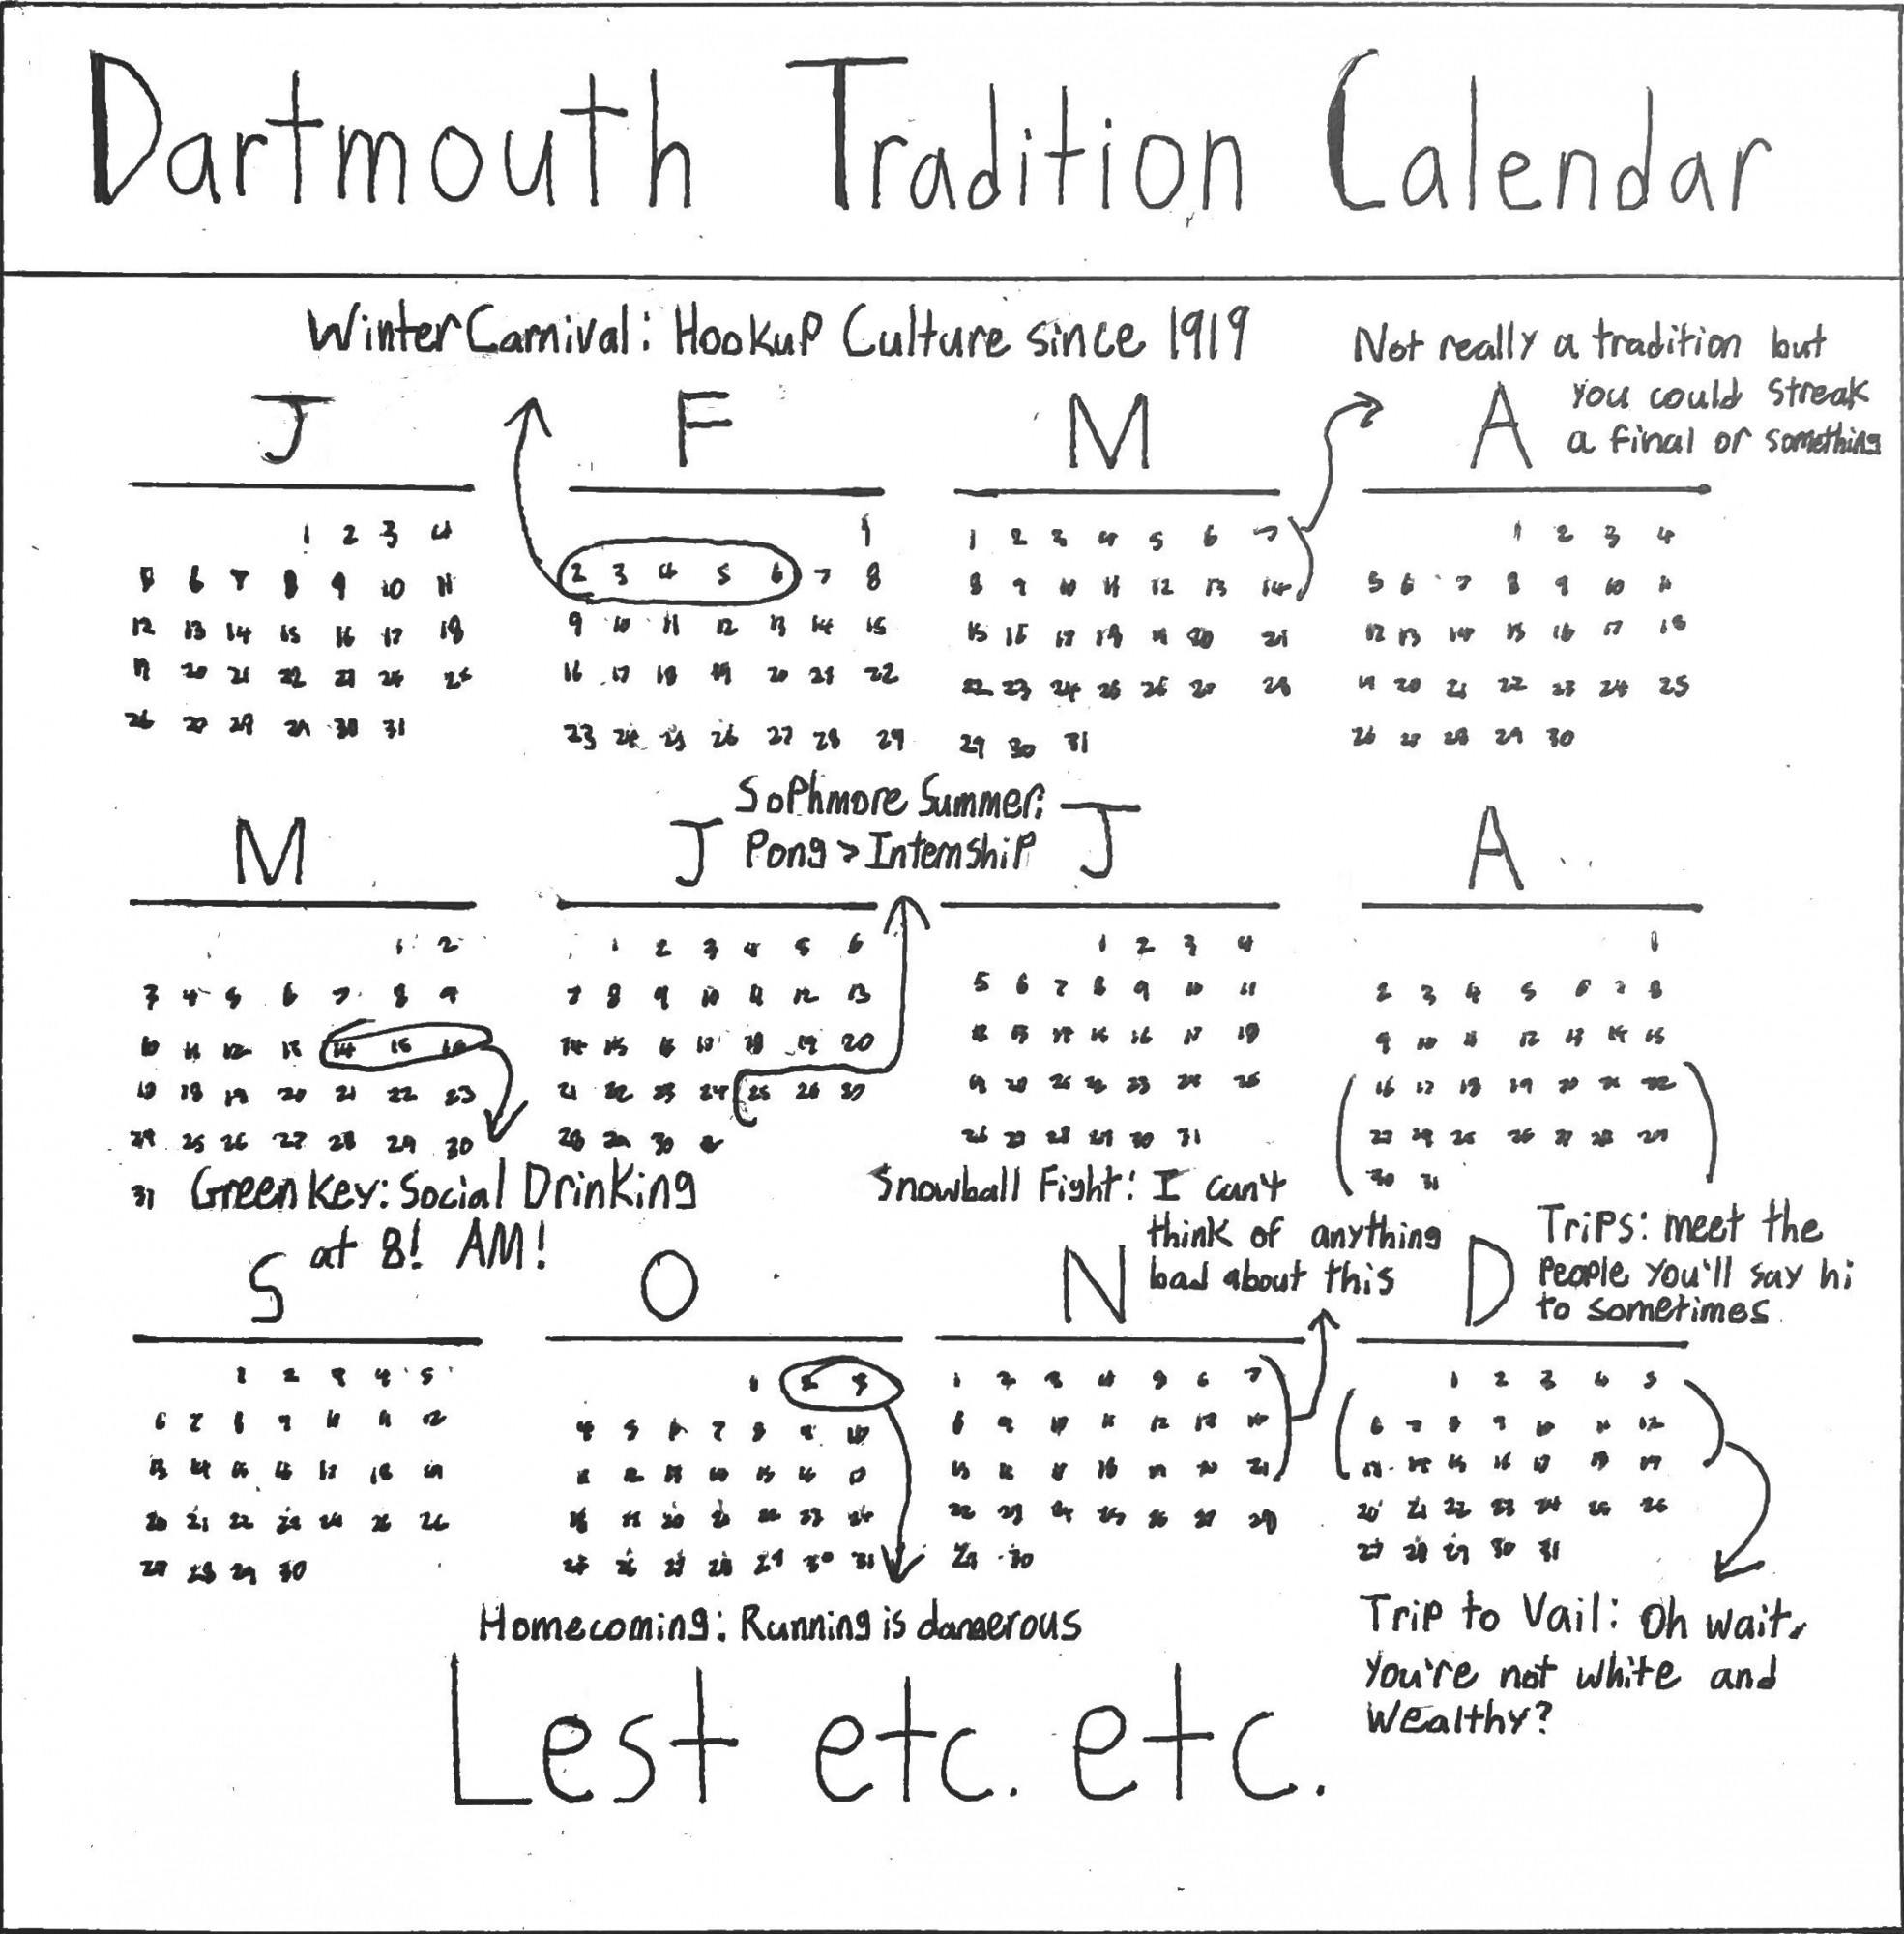 Dartmouth Tradition Calendar
Winter Carnival: Hookup Culture since 1919
Not really a tradition but
you could streak
a final or something
J F M A
1 2 3 4
5 6 7 8 9 10 11
12 13 14 15 16 17 18
19 20 21 22 23 24 25
26 27 28 29 30 31
1
2 3 4 5 6 7 8
9 10 11 12 13 14 15
16 17 18 19 20 21 22
23 24 25 26 27 28 29
1 2 3 4 5 6 7
8 9 10 11 12 13 14
15 16 17 18 19 20 21
22 23 24 25 26 27 28
29 30 31
1 2 3 4
5 6 7 8 9 10 11
12 13 14 15 16 17 18
19 20 21 22 23 24 25
26 27 28 29 30
Sophmore Summer:
Pong > Internship
M J J A
1 2
3 4 5 6 7 8 9
10 11 12 13 14 15 16
18 19 20 21 22 23
25 26 27 28 29 30
31
1 2 3 4 5 6
7 8 9 10 11 12 13
14 15 18 19 20
21 22 23 24 25 26 27
28 29 30
1 2 3 4
5 6 7 8 9 10 11
15 16 17 18
19 20 21 22 23 24 25
26 27 28 29 30 31
1
2 3 4 5 6 7 8
9 10 11 12 13 14 15
16 17 18 19 20 21 22
25 26 27 28 29
30 31
Green Key: Social Drinking
at 8! AM!
Snowball Fight: I can't
think of anything
bad about this
Trips: meet the
people you'll say hi
to sometimes
S O N D
1 2 3 4 5
6 7 8 9 10 11 12
13 14 15 16 17 18 19
20 21 22 23 24 25 26
27 28 29 30
1 2 3
4 5 6 7 8 9 10
28 30 31
1 2 3 4 5 6 7
8 9 10 11 12 13 14
22 23 24 25 26 27 28
29 30
1 2 3 4 5
6 7 8 9 10 11 12
15 16 17 18 19
20 21 22 23 24 25 26
27 28 29 30 31
Homecoming: Running is dangerous
Trip to Vail: Oh wait,
you're not white and
wealthy?
Lest etc. etc.